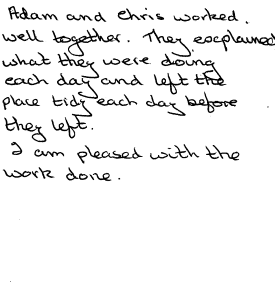 Adam and Chris worked.
well together. They explained
what they were doing
each day and left the
place tidy each day before
they left.
I am pleased with the
work done.